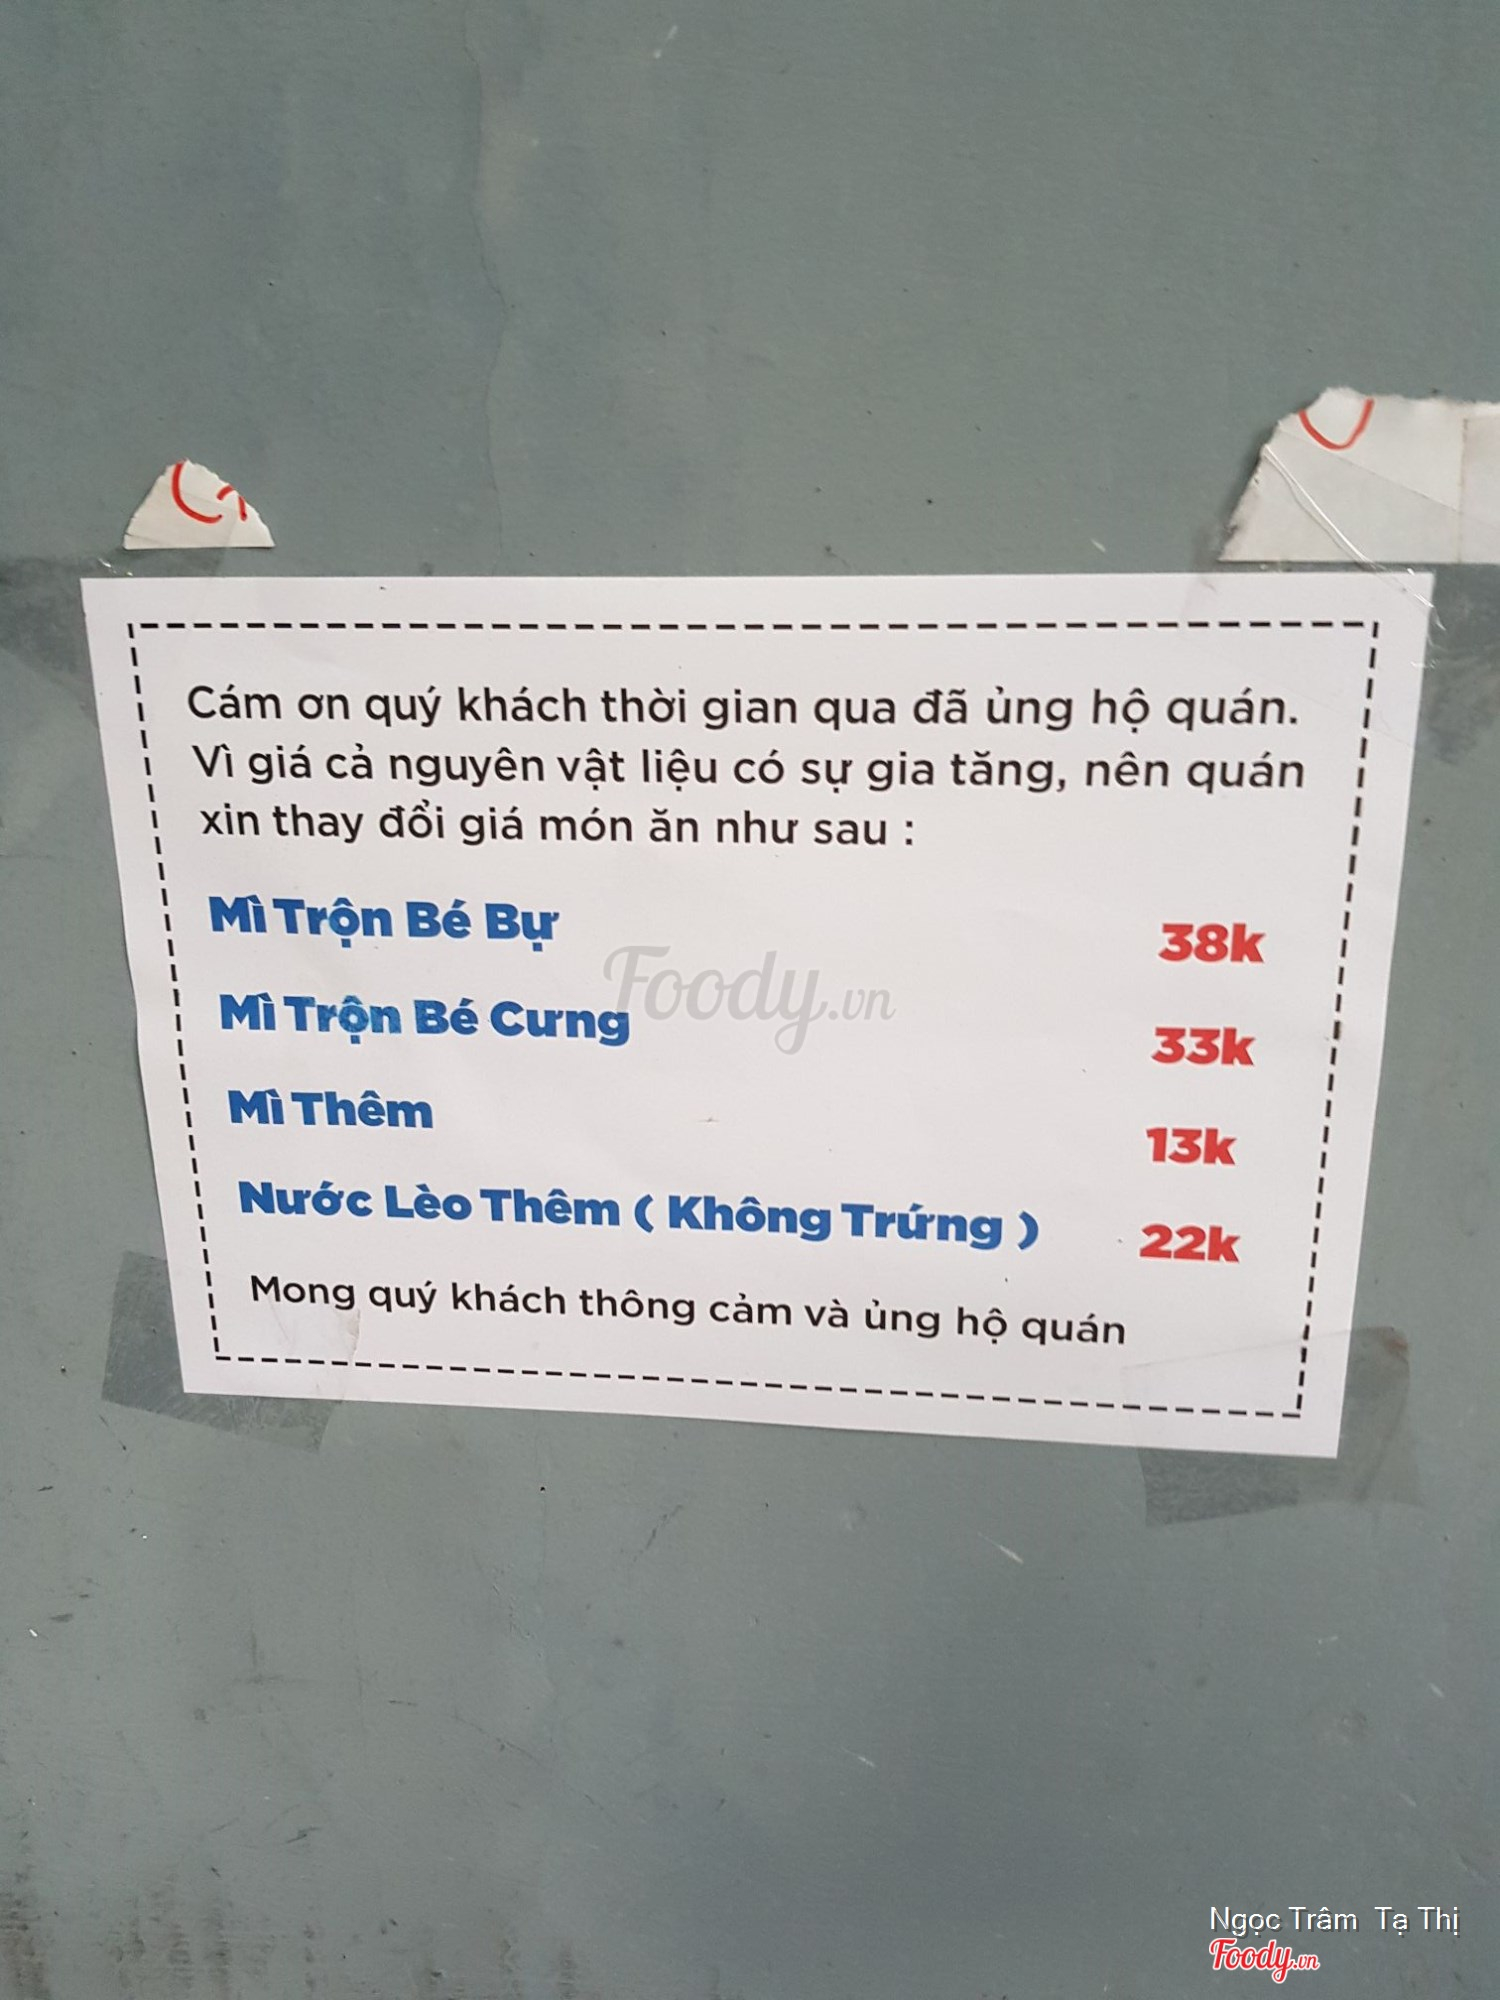 Cám ơn quý khách thời gian qua đã ủng hộ quán.
Vì giá cả nguyên vật liệu có sự gia tăng, nên quán
xin thay đổi giá món ăn như sau :
Mì Trộn Bé Bự 38k
Mì Trộn Bé Cưng 33k
Mì Thêm 13k
Nước Lèo Thêm ( Không Trứng ) 22k
Mong quý khách thông cảm và ủng hộ quán
Foody.vn
Ngọc Trâm Tạ Thị
Foody.vn